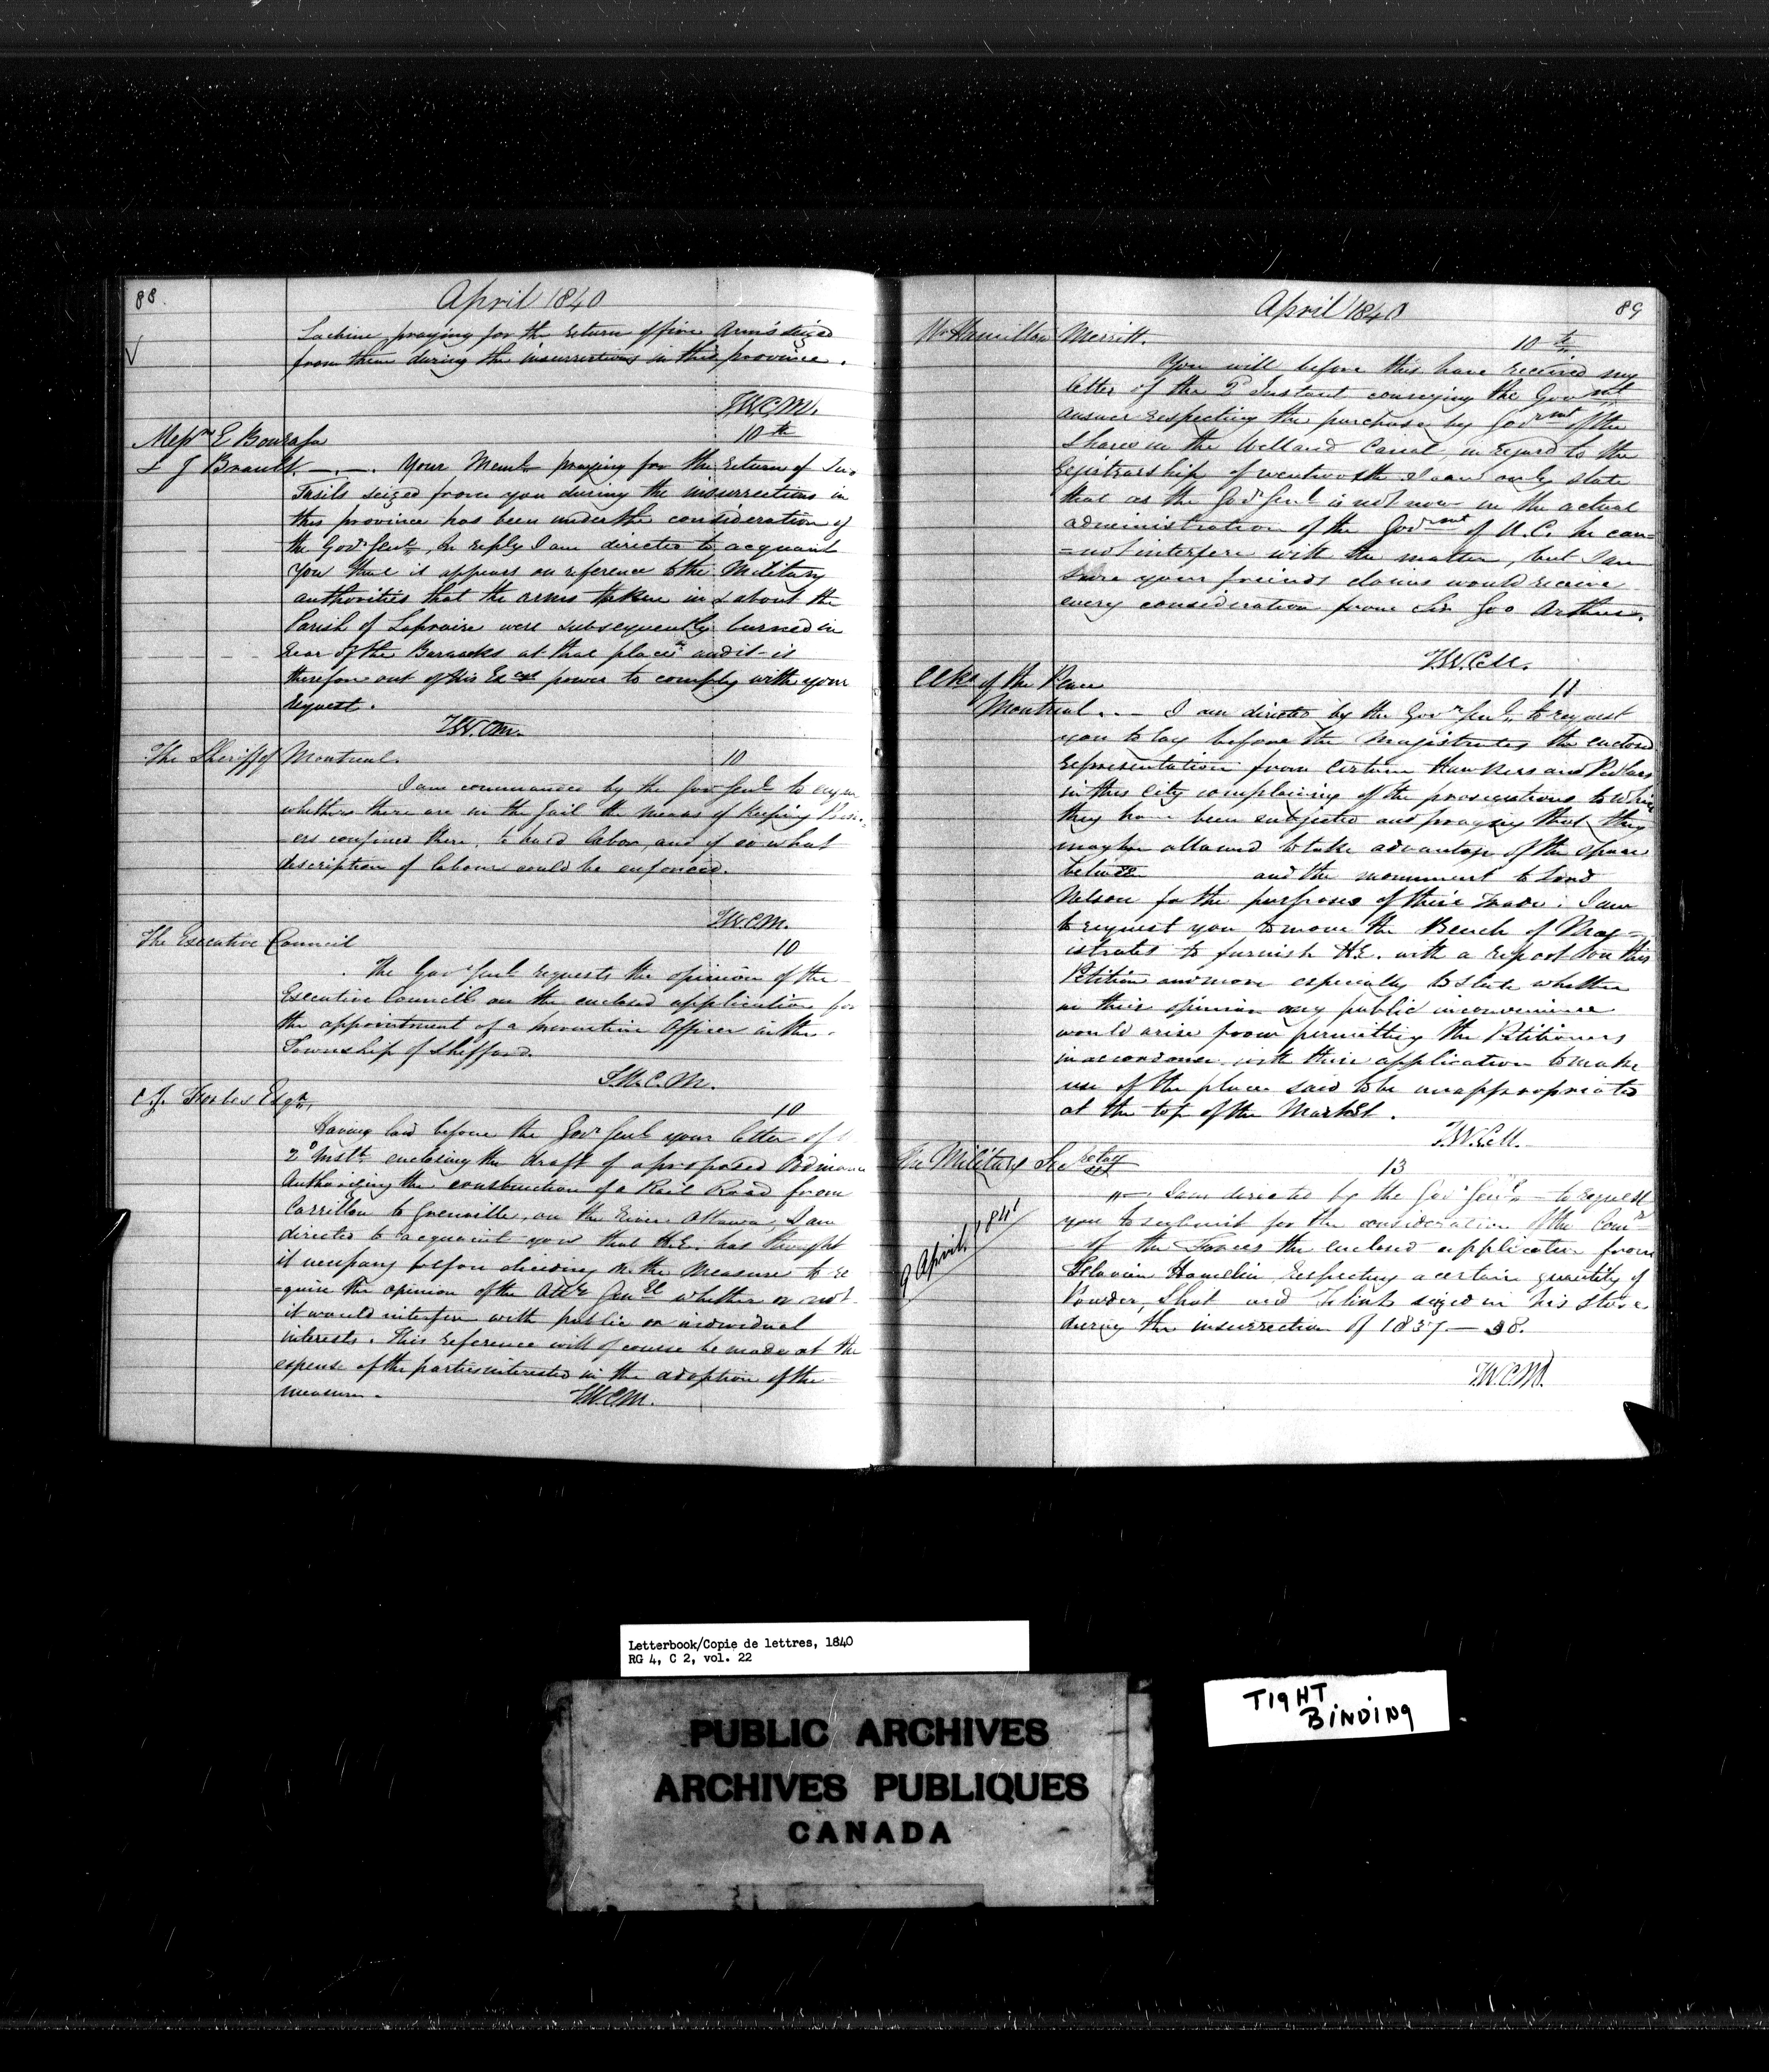 88.
April 1840
Lachine praying for the return of fire Arms seized
from them during the insurrections in this province.
T.W.C.M.
Messrs E Bourassa
10th
& J Brault —.—. Your Meml praying for the return of two
Fusils seized from you during the insurrections in
this province has been under the consideration of
the Govr Genl, In reply I am directed to acquaint
you that it appears on reference to the Military
authorities that the arms taken in & about the
Parish of Laprairie were subsequently burned in
rear of the Barracks at that place and it is
therefore out of His Excys power to comply with your
request.
T.W.C.M.
The Sheriff of Montreal.
10
I am commanded by the Govr Genl to
whether there are in the Jail the means of Keeping
ers confined there, to hard labor, and if so what
description of labour could be enforced.
T.W.C.M.
The Executive Council
10
The Govr Genl requests the opinion of the
Executive Council on the enclosed application for
the appointment of a preventive Officer in the
Township of Shefford.
T.W.C.M.
C.J. Forbes Esqr,
10
Having laid before the Govr Genl your letter of
2d Instt. enclosing the draft of a proposed Ordinance
Authorizing the construction of a Rail Road from
Carrillon to Grenville, on the River Ottawa, I am
directed to acquaint you that H.E. has thought
it necessary before deciding on the measure to re
=quire the opinion of the Atty Genl whether or not
it would interfere with public or individual
interests. This reference will of course be made at the
expense of the parties interested in the adoption of the
measure.
T.W.C.M.
April 1840
89
Mr Hamilton Merritt.
10th
You will before this have received my
letter of the 2 Instant conveying the Govmnt
answer respecting the purchase by Govrmt of the
Shares in the Welland Canal, in regard to the
Registrarship of Wentworth I can only state
that as the Govr Genl is not now in the actual
administration of the Govrmnt of U.C. he can=
=not interfere with the matter, but I am
sure your friends claims would receive
every consideration from Sir Geo Arthur.
T.W.C.M.
Clks of the Peace
11
Montreal. — I am directed by the Govr Genl to request
you to lay before the Magistrates the enclosed
representation from certain Hawkers and Pedlars
in this City complaining of the prosecutions to which
they have been subjected and praying that they
may be allowed to take advantage of the space
between and the monument to Lord
Nelson for the purposes of their Trade. I am
to request you to move the Bench of Mag=
istrates to furnish H.E. with a report on this
Petition and more especially to state whether
in their opinion any public inconvenience
would arise from permitting the Petitioners
in accordance with their application to make
use of the place said to be unappropriated
at the top of the Market.
T.W.C.M.
The Military Secretary
13
I am directed by the Govr Genl to request
you to submit for the consideration of the Comr
of the Forces the enclosed application from
Flavien Hamelin respecting a certain quantity of
Powder, Shot and Flints seized in his store
during the insurrection of 1837–38.
9 April, 1841
T.W.C.M.
Letterbook/Copie de lettres, 1840
RG 4, C 2, vol. 22
PUBLIC ARCHIVES
ARCHIVES PUBLIQUES
CANADA
TIGHT
BINDING